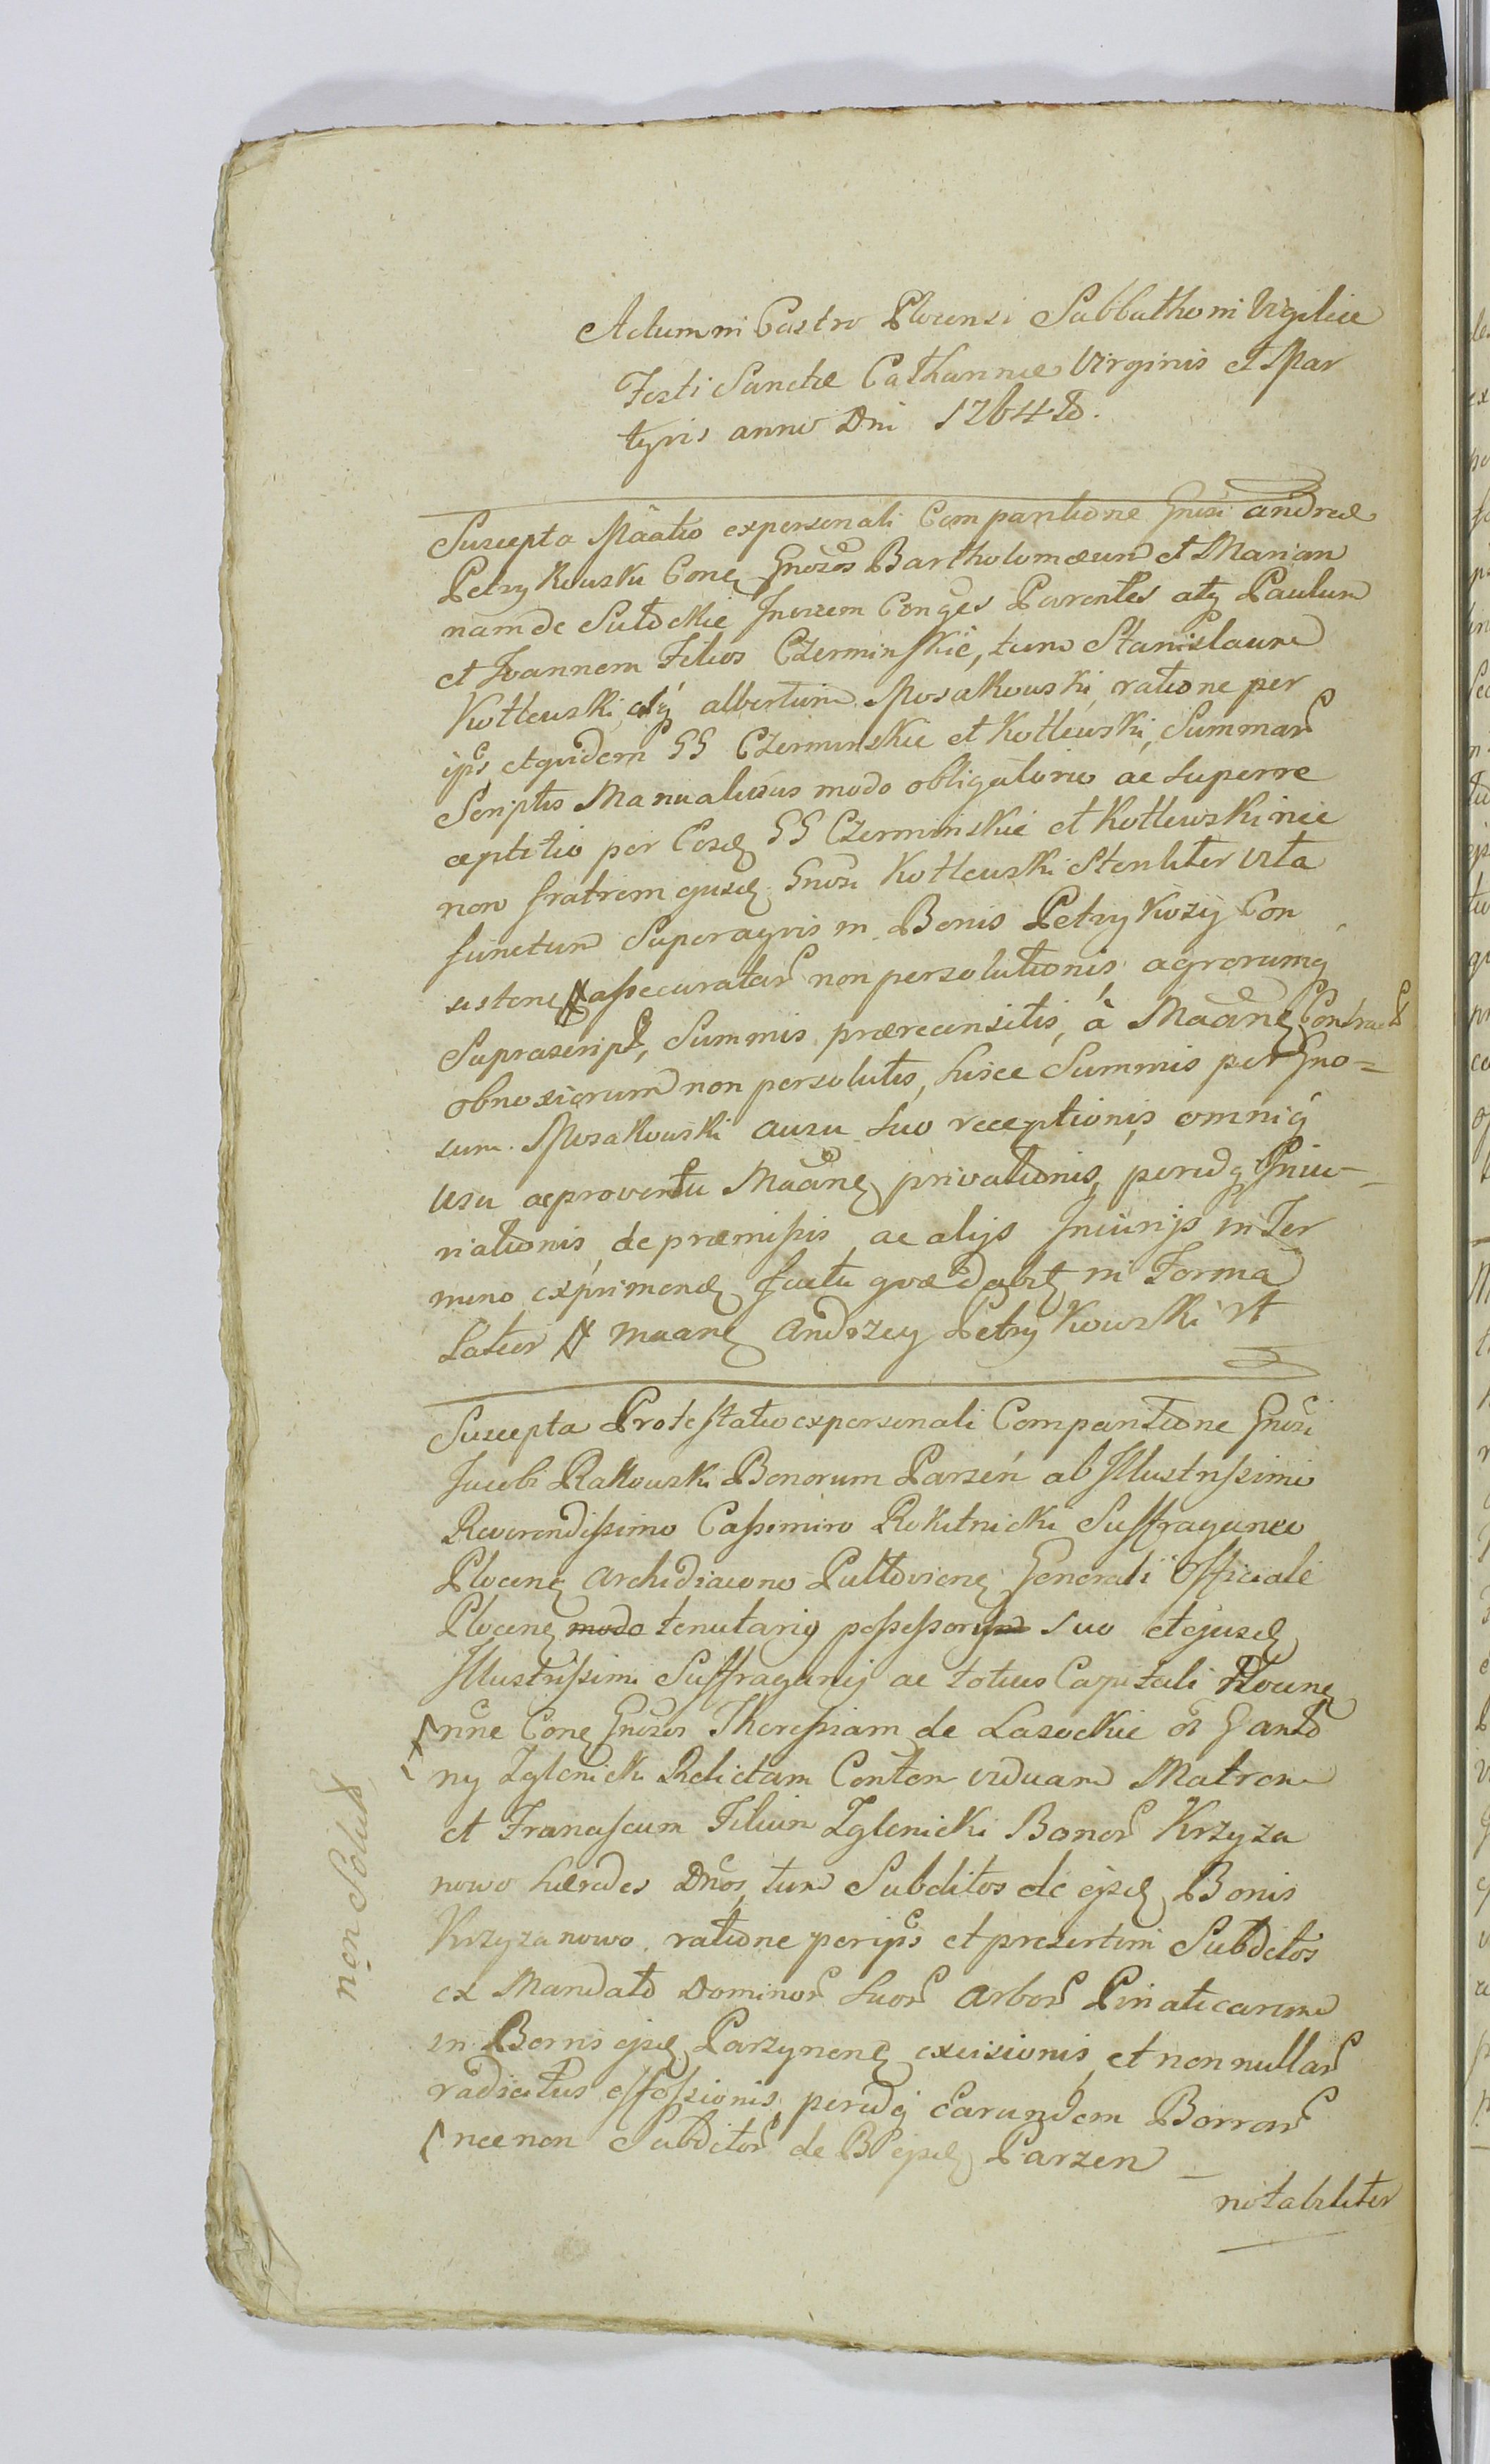 Actum in Castro Plocensi Sabbatho in Vigiliae
Festi Sanctae Catharinae Virginis et Mar
tyris anno Dni 1764to.
Suscepta Mãatio ex personali Comparitione Gnõsi Andreae
Petrykowski Conẽ Gnosos Bartholomaeum et Marian
nam de Sutockie Inuicem Conges Parentes atq Paulum
et Ioannem Filios Czerminskie, tum Stanislaum
Kotlewski, atq albertum Mosakowski, ratione per
ips, et quidem GG Czerminskie et Kotlewski, Summar
Scriptis Manualibus modo obligatorio ac superre
ceptitio per Eosd GG Czerminskie et Kotlewski nec
non fratrem ejusd Gnosi Kotlewski Steriliter Vita
functum Super agris in Bonis Petrykozy Con
sisten assecuratar non persolutionis, agrorumq
Suprascript, Summis praerecensitis, à Mãane Contract
obnoxiorum non persolutis, hisce Summis per Gno=
sum Mosakowski ausu suo receptionis, omniq
usu ac proventu Mãane privationis, per idq Iniu-
riationis, de praemissis, ac alijs Iniurijs in Ter
mino exprimend factu quae dabit in Forma
Latior Mãane Andrzey Petrykowski st
Suscepta Protestatio ex personali Comparitione Gnosi
Jacobi Rakowski Bonorum Parzeń ab Illustrissimo
Reverendissimo Cassimiro Rokitnicki Suffraganeo
Plocen Archidiacono Pultovien Generali Officiale
Plocen modo tenutariq possessor suo et ejusd
Illustrissimi Suffraganij ac totius Capituli Plocen
nne Conẽ Gnosos Theressiam de Lasockie Ganto
ny Zglenicki Relictam Conten viduam Matrem
et Franciscum Filium Zglenicki Bonor Krzyza
nowo haeredes Dnos, tum Subditos de ejsd Bonis
Krzyzanowo, ratione per ips et presertim Subditos
ex Mandato Dominor suor Arbor Pinaticarum
in Bonis ejsd Parzynen excisionis, et nonnullar
radicitus effossionis, per idq Earundem Borrar
nec non Subditor de B ejsd Parzen
notabiliter
non Solut